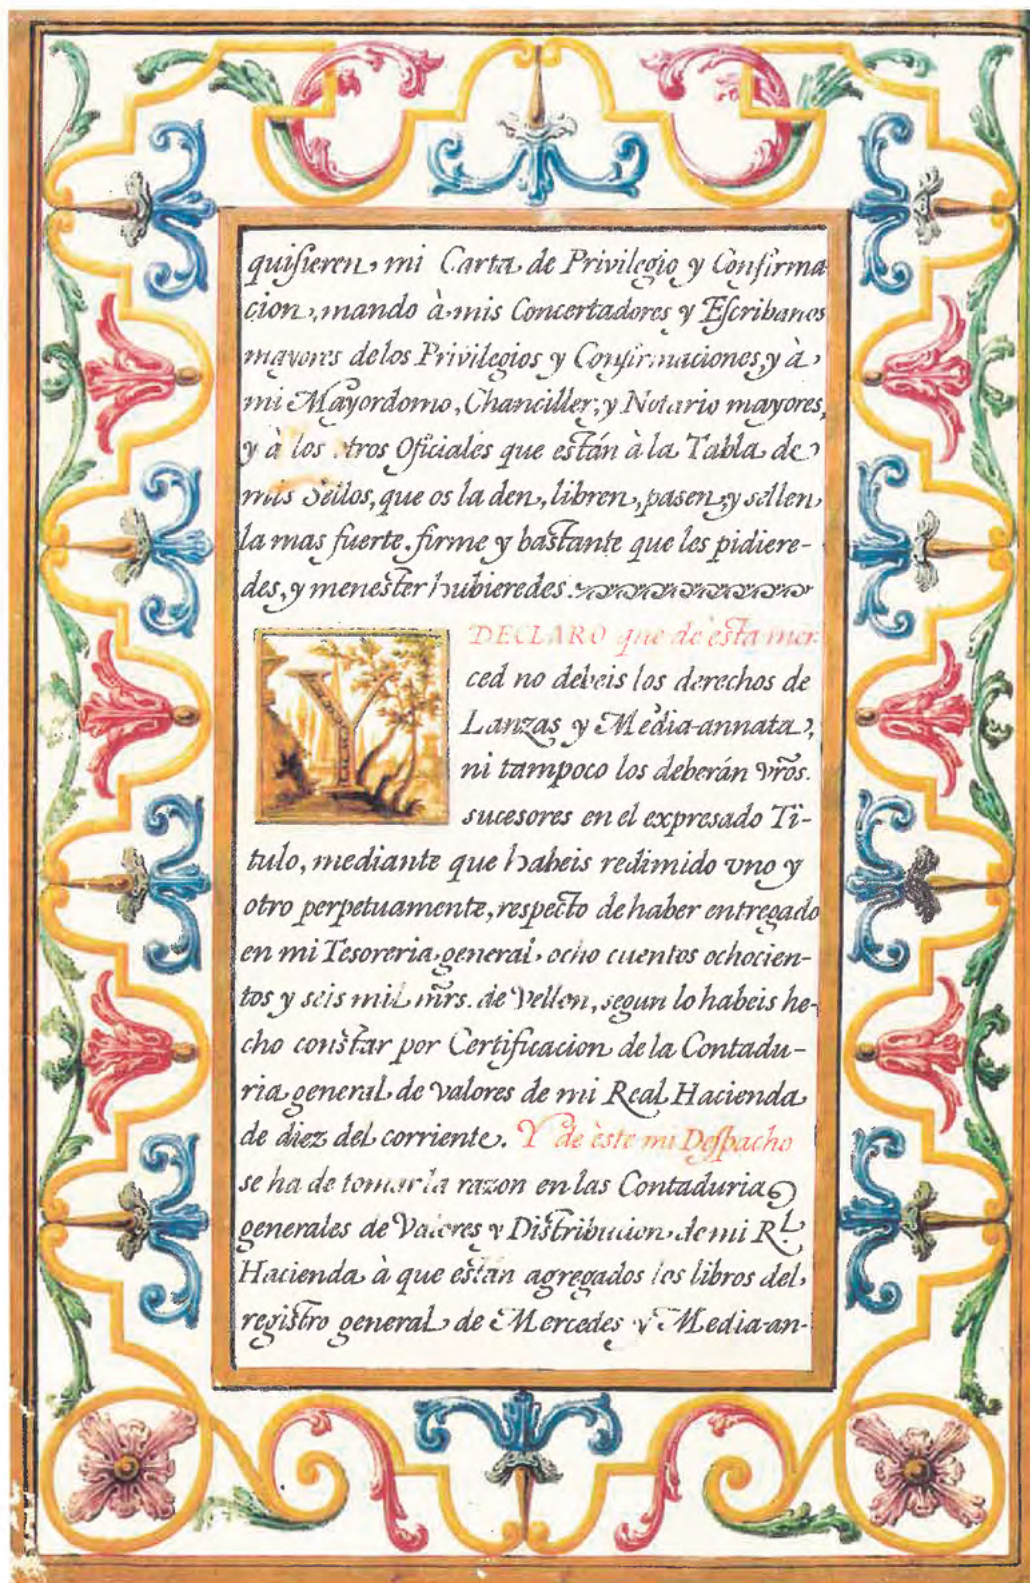 quisieren, mi Carta de Privilegio y Confirma
cion, mando à mis Concertadores y Escribanos
mayores de los Privilegios y Confirmaciones, y à
mi Mayordomo, Chanciller, y Notario mayores,
y à los otros Oficiales que están à la Tabla de
mis Sellos, que os la den, libren, pasen, y sellen
la mas fuerte, firme y bastante que les pidiere-
des, y menester hubieredes.
Y DECLARO que de esta mer-
ced no debeis los derechos de
Lanzas y Media-annata,
ni tampoco los deberán vrõs.
sucesores en el expresado Ti-
tulo, mediante que habeis redimido uno y
otro perpetuamente, respecto de haber entregado
en mi Tesoreria general ocho cuentos ochocien-
tos y seis mil m̃rs. de Vellon, segun lo habeis he-
cho constar por Certificacion de la Contadu-
ria general de valores de mi Real Hacienda
de diez del corriente. Y de èste mi Despacho
se ha de tomar la razon en las Contadurias
generales de Valores y Distribucion de mi Rl.
Hacienda à que están agregados los libros del
registro general de Mercedes y Media-an-